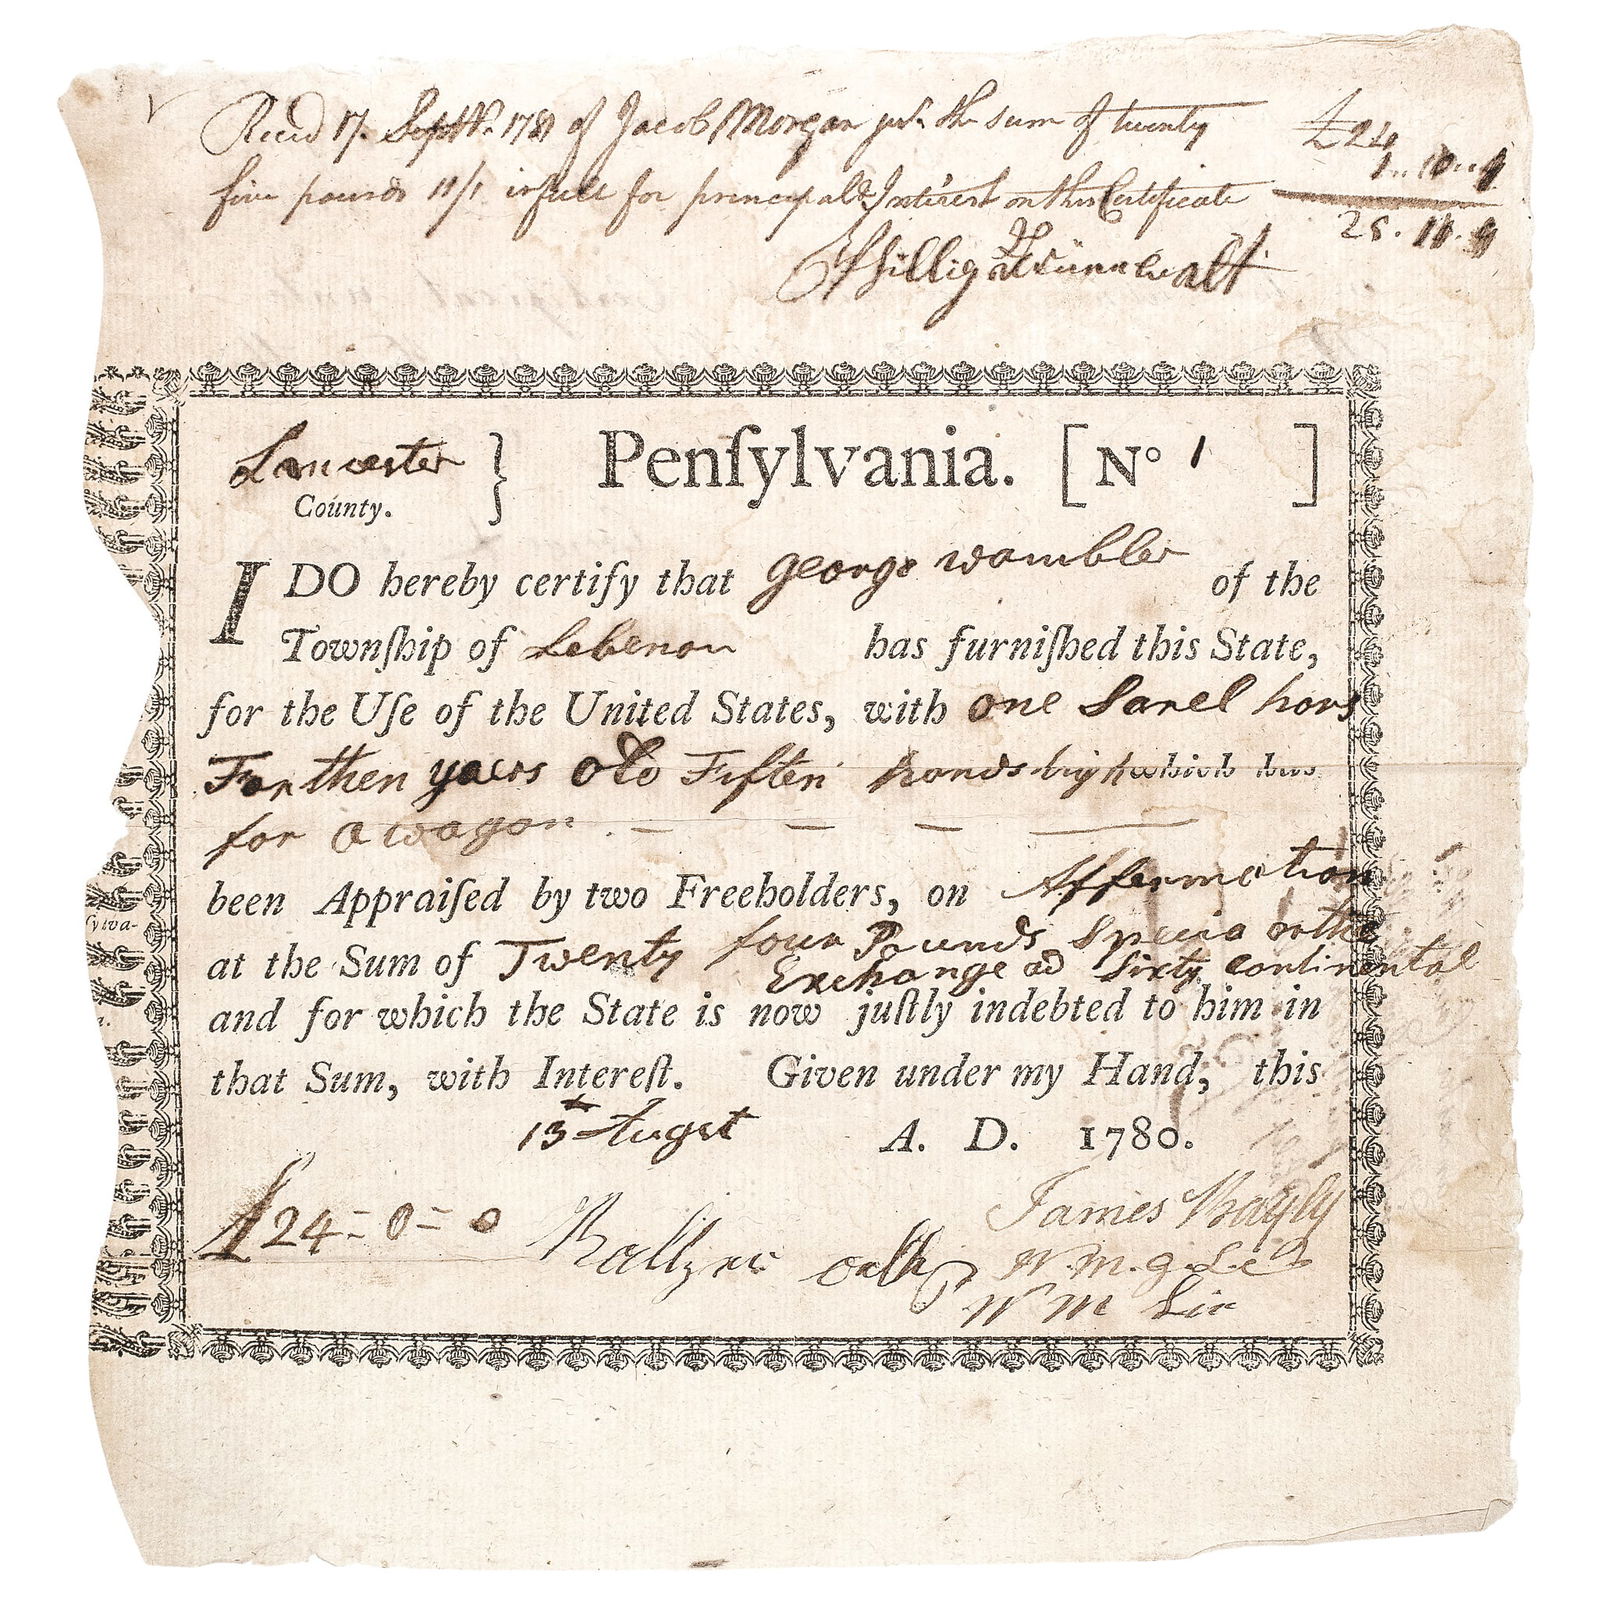 Recd 17 Septbr 1781 of Jacob Morgan junr the sum of twenty
five pounds 11/1 in full for principal & Interest on this Certificate
£24
25. 11.
Phillig
Lancester
County.
Penſylvania. [No 1 ]
I DO hereby certify that george wambler of the
Townſhip of Lebenon has furniſhed this State,
for the Uſe of the United States, with one Sarel hors
Forthen yaers old Fiften hands high which has
for a wagon. — — — —
been Appraiſed by two Freeholders, on Affermation
at the Sum of Twenty four Pounds Specia or the
Exchange ad Sixty continental
and for which the State is now juſtly indebted to him in
that Sum, with Intereſt. Given under my Hand, this
13 Augst A. D. 1780.
£24=0=0
Balzer orth
James Bayly
W. M. g. L. C
W M Lin
ſylva-
a.